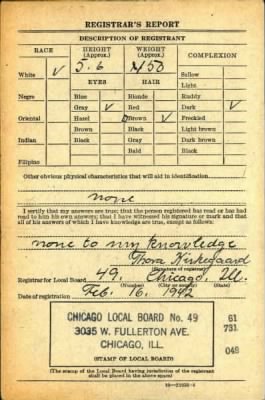 REGISTRAR'S REPORT
DESCRIPTION OF REGISTRANT
RACE HEIGHT (Approx.) WEIGHT (Approx.) COMPLEXION
White ✓ 5.6 150 Sallow
EYES HAIR Light
Negro Blue Blonde Ruddy
Gray ✓ Red Dark ✓
Oriental Hazel Brown ✓ Freckled
Brown Black Light brown
Indian Black Gray Dark brown
Bald Black
Filipino
Other obvious physical characteristics that will aid in identification
none
I certify that my answers are true; that the person registered has read or has had
read to him his own answers; that I have witnessed his signature or mark and that
all of his answers of which I have knowledge are true, except as follows:
none to my knowledge
Thora Kirkegaard
(Signature of registrar)
Registrar for Local Board 49, Chicago, Ill.
(Number) (City or county) (State)
Date of registration Feb. 16, 1942
CHICAGO LOCAL BOARD No. 49
3035 W. FULLERTON AVE.
CHICAGO, ILL.
61
731
048
(STAMP OF LOCAL BOARD)
(The stamp of the Local Board having jurisdiction of the registrant
shall be placed in the above space)